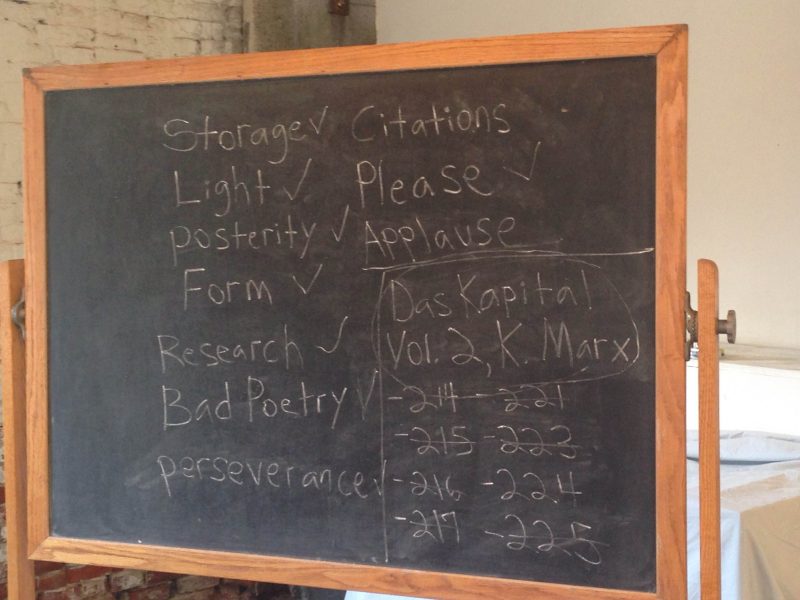 Storage✓
Light ✓
Posterity ✓
Form ✓
Research ✓
Bad Poetry ✓
perseverance✓
Citations
Please ✓
Applause
Das Kapital
Vol. 2, K. Marx
-214 -221
-215 -223
-216 -224
-217 -225